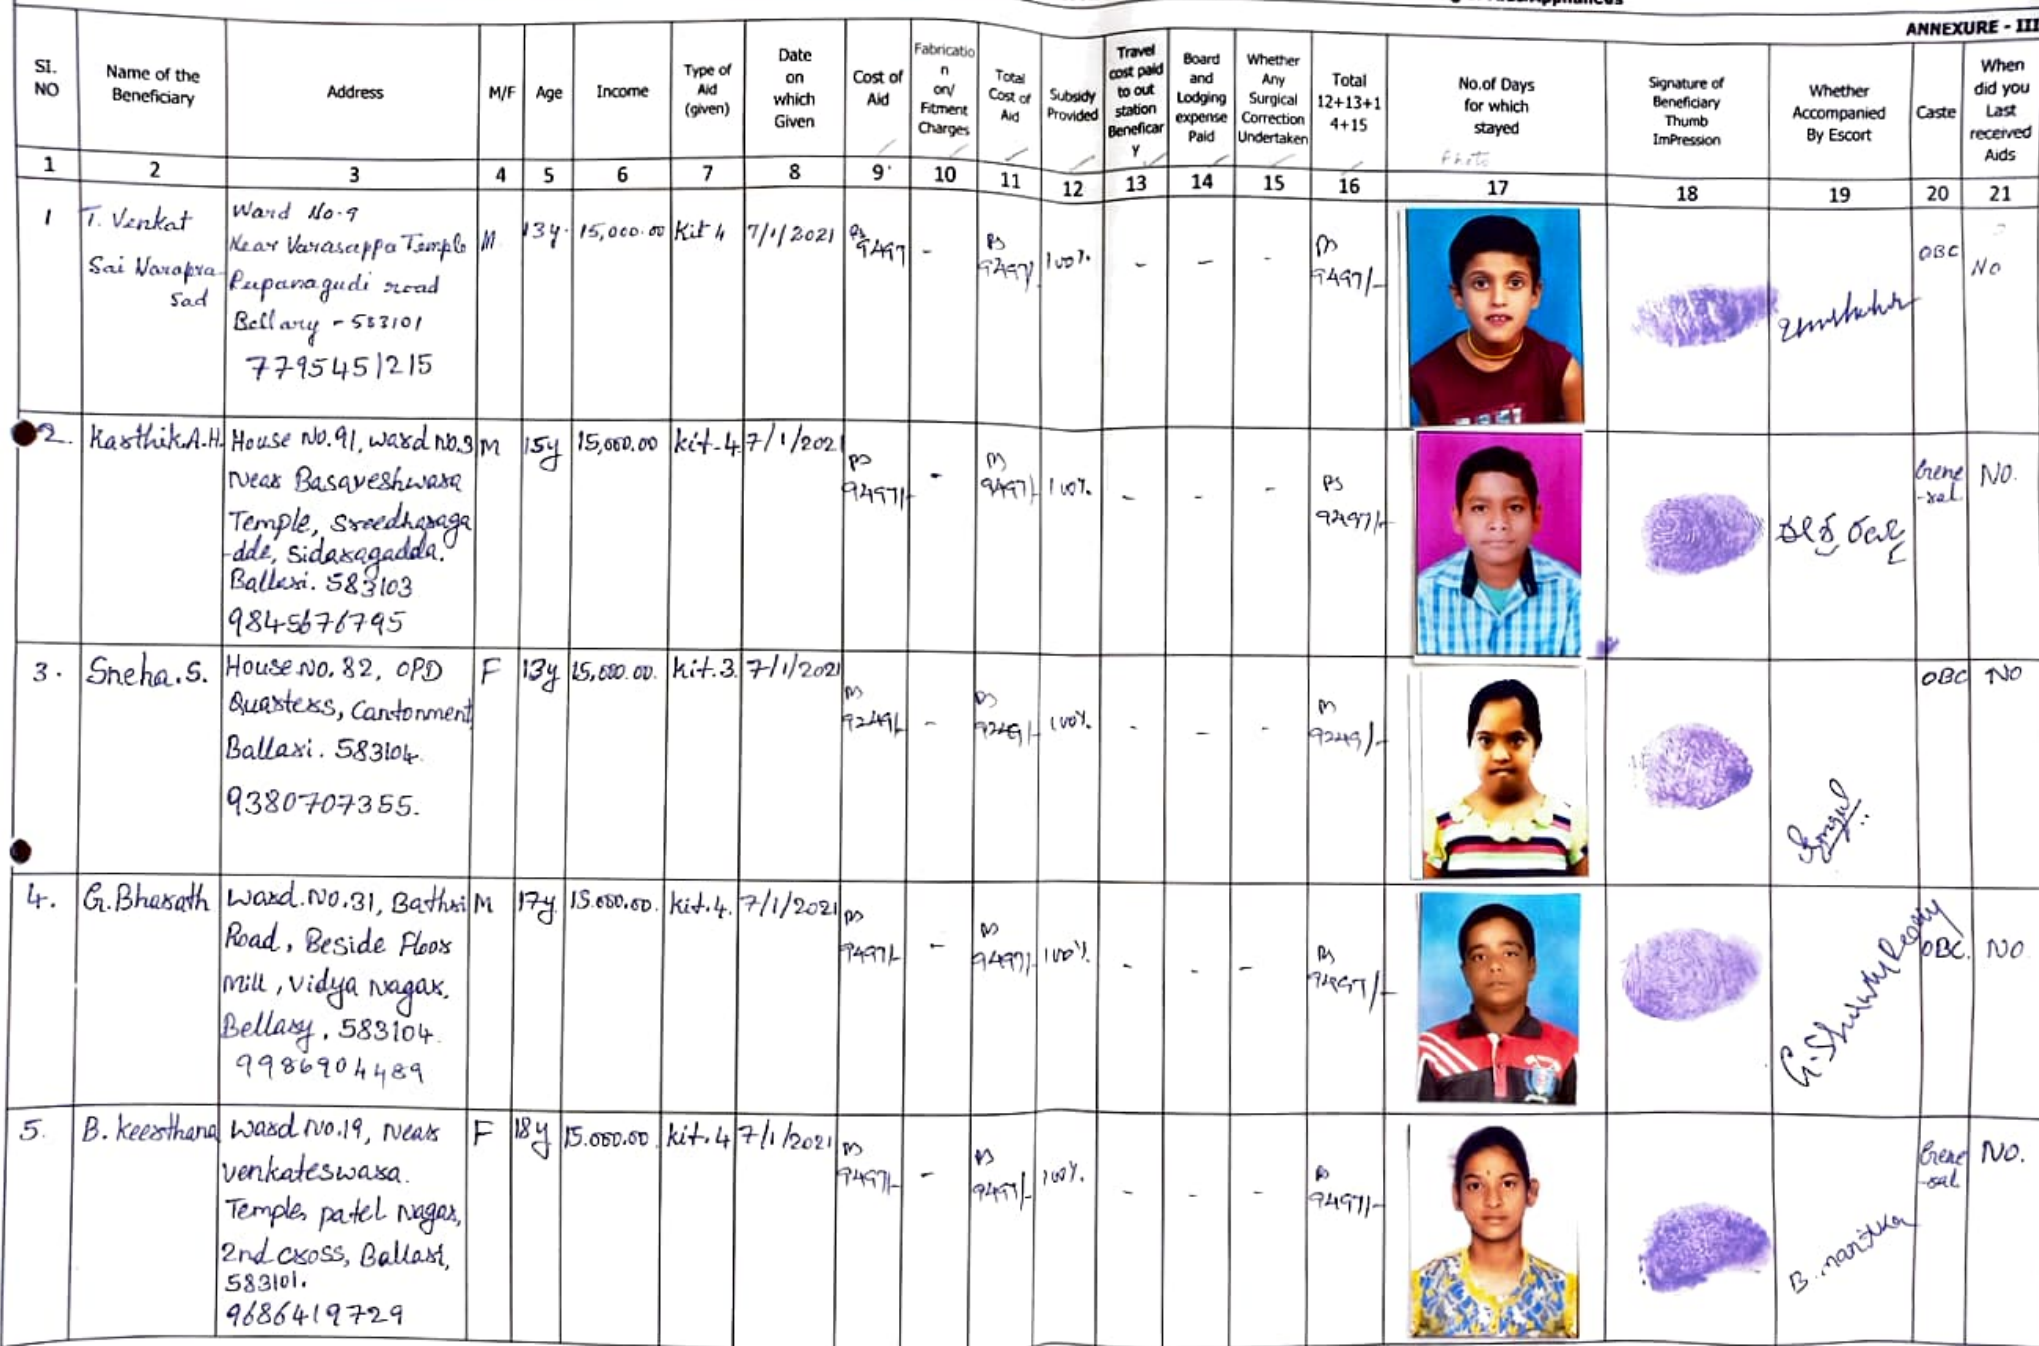 ANNEXURE - III
SI. NO
Name of the Beneficiary
Address
M/F
Age
Income
Type of Aid (given)
Date on which Given
Cost of Aid
Fabricatio n on/ Fitment Charges
Total Cost of Aid
Subsidy Provided
Travel cost paid to out station Beneficar y
Board and Lodging expense Paid
Whether Any Surgical Correction Undertaken
Total 12+13+1 4+15
No.of Days for which stayed
Photo
Signature of Beneficiary Thumb ImPression
Whether Accompanied By Escort
Caste
When did you Last received Aids
1 2 3 4 5 6 7 8 9 10 11 12 13 14 15 16 17 18 19 20 21
1
T. Venkat
Sai Narapra-
sad
Ward No-9
Near Varasappa Temple
Rupanagudi road
Bellary - 583101
7795451215
M
13y.
15,000.00
Kit 4
7/1/2021
Rs 9497
-
Rs 9497/
100%
-
-
-
Rs 9497/-
OBC
No
2.
Karthik.A.H.
House No.91, ward no.3
Near Basaveshwara
Temple, Sreedharaga
-dde, Sidaragadda.
Ballari. 583103
9845676795
M
15y
15,000.00
kit-4
7/1/2021
Rs 9497/-
-
Rs 9497/-
100%
-
-
-
Rs 9497/-
Gene
-ral
NO.
3.
Sneha.S.
House No. 82, OPD
Quarters, Cantonment
Ballari. 583104.
9380707355.
F
13y
15,000.00.
kit.3.
7/1/2021
Rs 9249/-
-
Rs 9249/-
100%
-
-
-
Rs 9249/-
OBC
NO
4.
G.Bharath
Ward.No.31, Bathri
Road, Beside Floor
Mill, Vidya Nagar.
Bellary. 583104.
9986904489
M
17y
15.000.00.
kit.4.
7/1/2021
Rs 9497/-
-
Rs 9497/-
100%
-
-
-
Rs 9497/-
OBC.
NO
5.
B. Keerthana
Ward No.19, Near
Venkateswara.
Temple, patel Nagar,
2nd cross, Ballari,
583101.
9686419729
F
18y
15.000.00
kit.4
7/1/2021
Rs 9497/-
-
Rs 9497/-
100%.
-
-
-
Rs 9497/-
Gene
-ral
NO.